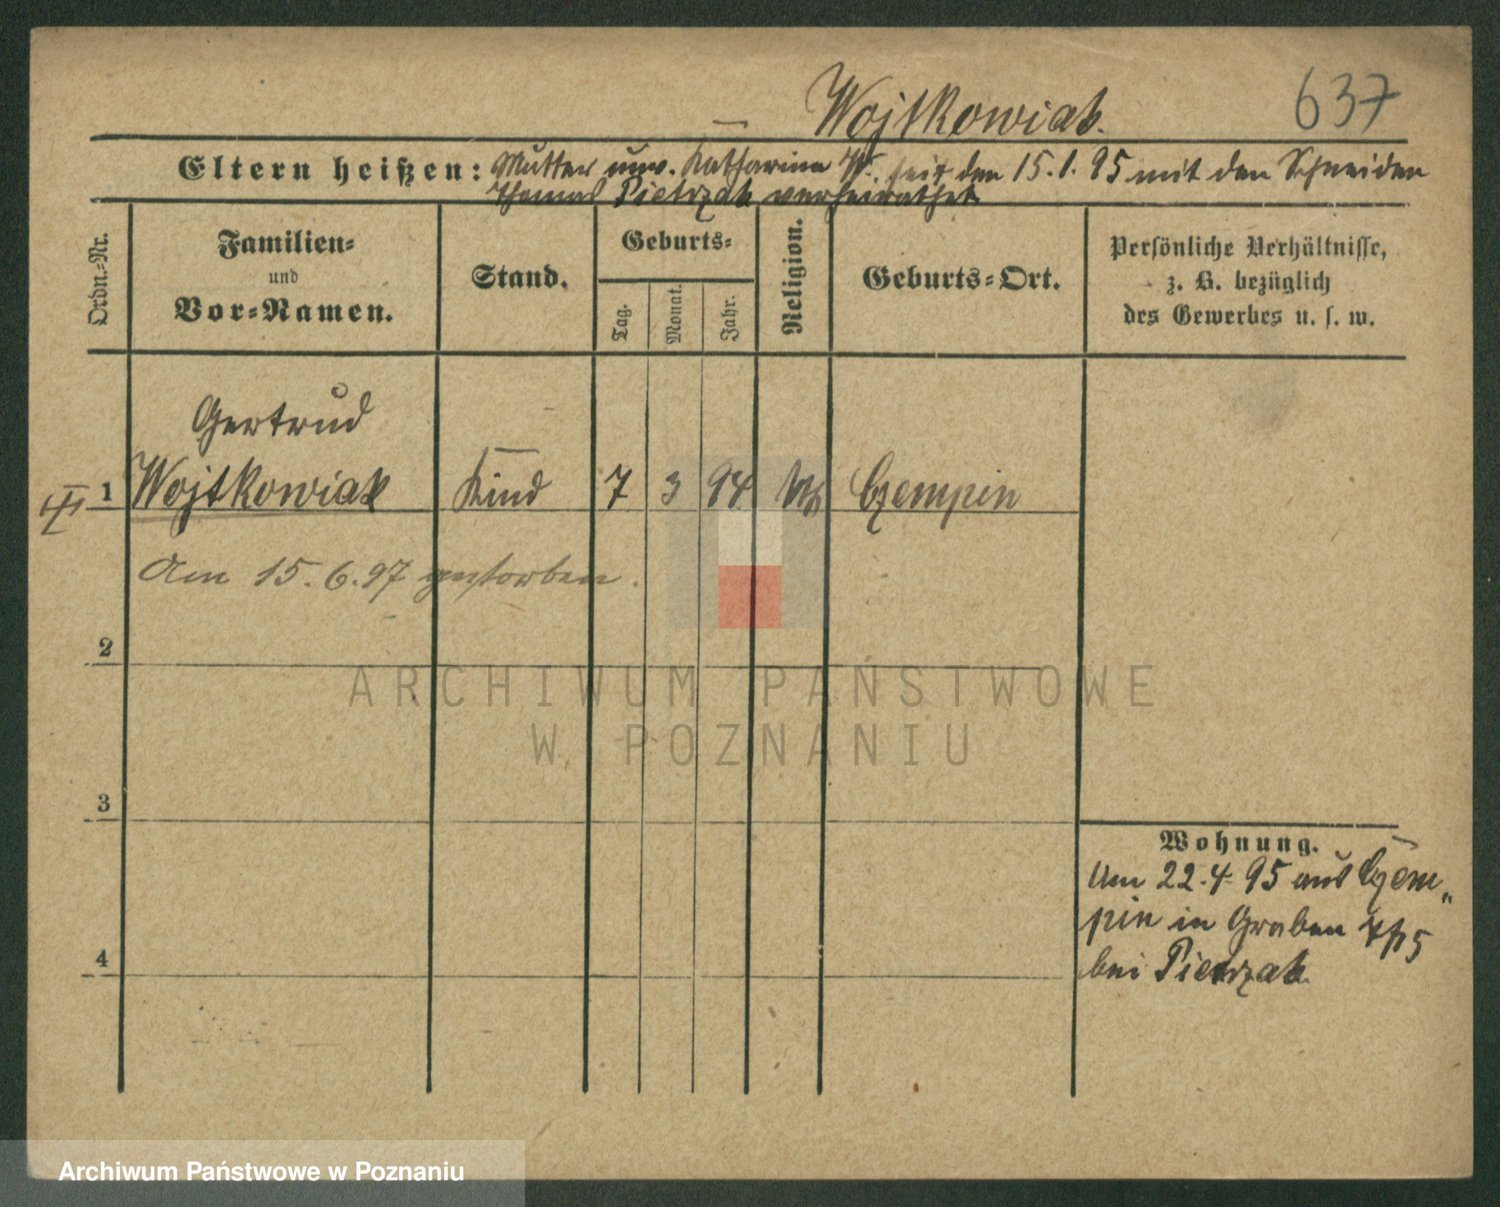 Wojtkowiak.
637
Eltern heißen: Mutter unv. Katharina W. seit dem 15.1.95 mit den Schneider
Thomas Pietrzak verheirathet
Ordn.-Nr.
Familien-
und
Vor-Namen.
Stand.
Geburts-
Tag.
Monat.
Jahr.
Religion.
Geburts-Ort.
Persönliche Verhältnisse,
z. B. bezüglich
des Gewerbes u. s. w.
Gertrud
1 Wojtkowiak Kind 7 3 94 Czempin
Am 15.6.97 gestorben.
2
3
4
Wohnung.
Am 22.4.95 aus Czem„
pin in Graben
bei Pietrzak
ARCHIWUM PAŃSTWOWE
W POZNANIU
Archiwum Państwowe w Poznaniu